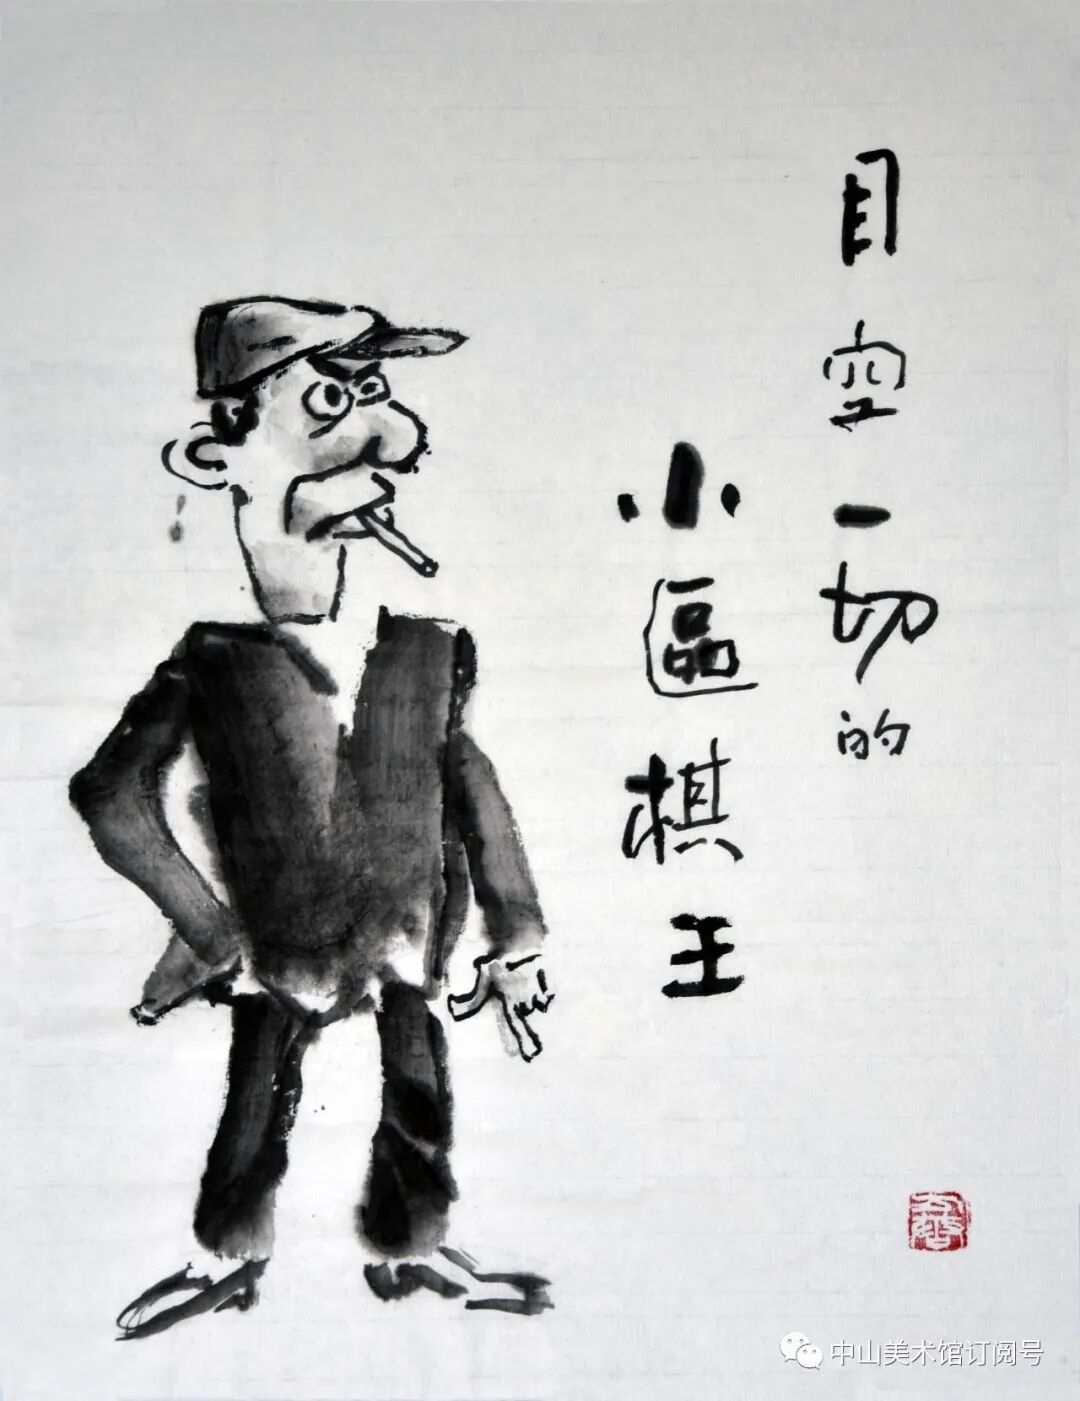 目空一切的
小區棋王
中山美术馆订阅号